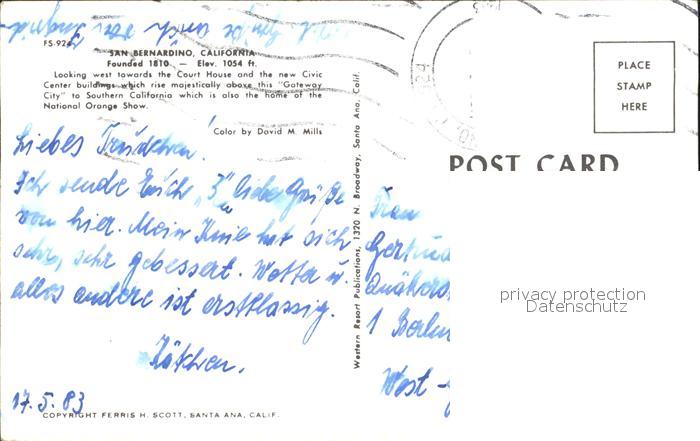 FS-924
SAN BERNARDINO, CALIFORNIA
Founded 1810 — Elev. 1054 ft.
Looking west towards the Court House and the new Civic
Center buildings which rise majestically above this "Gateway
City" to Southern California which is also the home of the
National Orange Show.
Color by David M. Mills
Liebes Trudchen!
Ich sende Euch „3" liebe Grüße
von hier. Mein Knie hat sich
sehr, sehr gebessert. Wetter u.
alles andere ist erstklassig.
Käthchen.
17.5.83
COPYRIGHT FERRIS H. SCOTT, SANTA ANA, CALIF.
Western Resort Publications, 1320 N. Broadway, Santa Ana, Calif.
PLACE
STAMP
HERE
POST CARD
Frau
Gertrud
1 Berlin
West-
privacy protection
Datenschutz